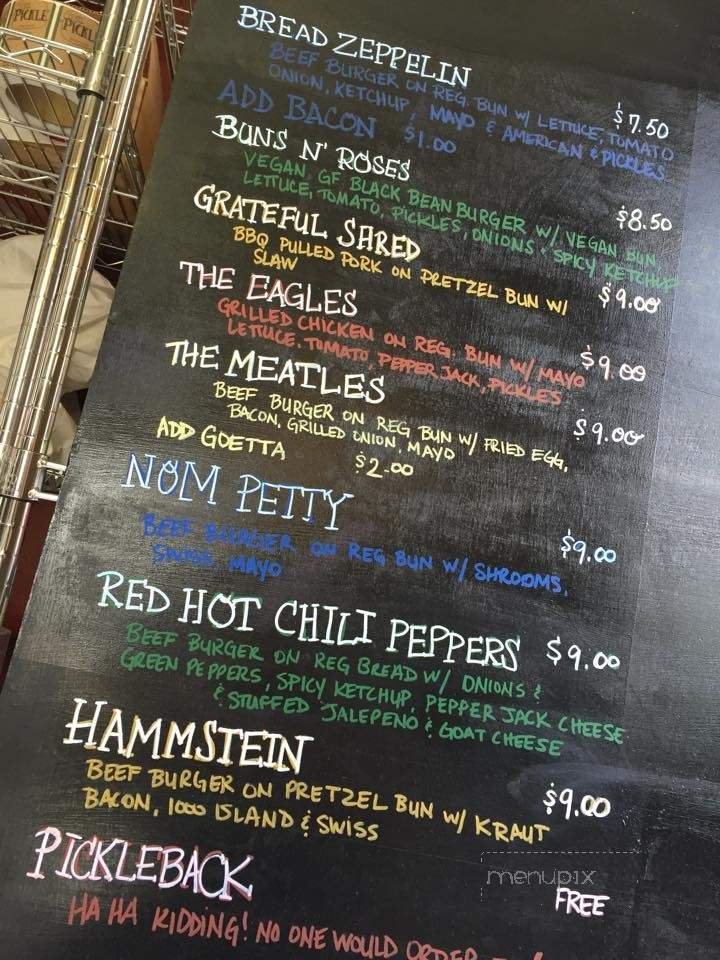 PICKLE
PICKL
BREAD ZEPPELIN
BEEF BURGER ON REG. BUN W/ LETTUCE, TOMATO $7.50
ONION, KETCHUP, MAYO & AMERICAN & PICKLES
ADD BACON $1.00
BUNS N' ROSES
VEGAN, GF BLACK BEAN BURGER W/ VEGAN BUN $8.50
LETTUCE, TOMATO, PICKLES, ONIONS & SPICY KETCHUP
GRATEFUL SHRED
BBQ PULLED PORK ON PRETZEL BUN W/ $9.00
SLAW
THE EAGLES
GRILLED CHICKEN ON REG. BUN W/ MAYO $9.00
LETTUCE, TOMATO, PEPPER JACK, PICKLES
THE MEATLES
BEEF BURGER ON REG BUN W/ FRIED EGG, $9.00
BACON, GRILLED ONION, MAYO
ADD GOETTA $2.00
NOM PETTY
BEEF BURGER ON REG BUN W/ SHROOMS, $9.00
SWISS, MAYO
RED HOT CHILI PEPPERS $9.00
BEEF BURGER ON REG BREAD W/ ONIONS &
GREEN PEPPERS, SPICY KETCHUP, PEPPER JACK CHEESE
& STUFFED JALEPENO & GOAT CHEESE
HAMMSTEIN
BEEF BURGER ON PRETZEL BUN W/ KRAUT $9.00
BACON, 1000 ISLAND & SWISS
PICKLEBACK
menupix
FREE
HA HA KIDDING! NO ONE WOULD ORDER